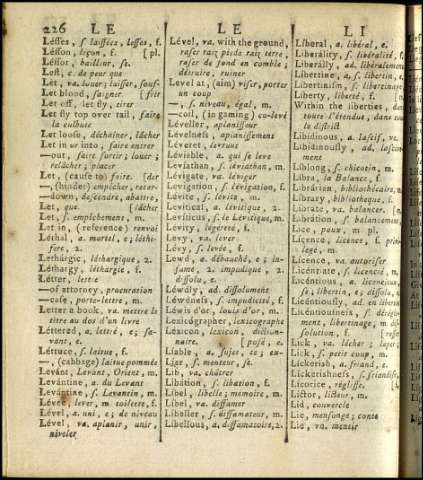 226 L E L E L I
Lésses, s. laissées, lesses, f.
Lésson, leçon, f. [pl.
Léssor, bailleur, se.
Lest, c. de peur que
Let, va. louer; laisser, souf-
Let blood, saigner. [frir
Let off, let fly, tirer
Let fly top over tail, faire
la culbute
Let loose, déchaîner, lâcher
Let in or into, faire entrer
—out, faire sortir; louer;
relâcher; placer
Let, (cause to) faire. [der
—, (hinder) empêcher, retar-
—down, descendre, abattre,
Let, que. [lâcher
Let, s. empêchement, m.
Let in, (reference) renvoi
Léthal, a. mortel, e; léthi-
fere, 2.
Lethárgic, léthargique, 2.
Léthargy, léthargie, f.
Létter, lettre
—of attorney, procuration
—case, porte-lettre, m.
Letter a book, va. mettre le
titre au dos d'un livre
Léttered, a. lettré, e; sa-
vant, e.
Léttuce, s. laitue, f.
—, (cabbage) laitue pommée
Levánt, Levant, Orient, m.
Levántine, a. du Levant
Levántine, s. Levantin, m.
Levée, lever, m toilette, f.
Lével, a. uni, e; de niveau
Lével, va. aplanir, unir,
niveler
Lével, va. with the ground,
raser rais pieds rais terre,
raser de fond en comble;
détruire, ruiner
Level at, (aim) viser, porter
un coup
—, s. niveau, égal, m.
—coil, (in gaming) co-levé
Léveller, aplanisseur
Lévelness, aplanissement
Léveret, levraut
Lévisible, a. qui se leve
Levíathan, s. léviathan, m.
Lévigate, va. léviger
Levigation, s. lévigation, f.
Lévite, s. lévite, m.
Levítical, a. lévitique, 2.
Levíticus, s. le Lévitique, m.
Levity, légéreté, f.
Levy, va. lever
Lévy, s. levée, f.
Lewd, a. débauché, e; in-
fame, 2. impudique, 2.
dissolu, e.
Léwdly, ad. dissolument
Léwdness, s. impudicité, f.
Léwis d'or, louis d'or, m.
Lexicógrapher, lexicographe
Léxicon, lexicon, diction-
naire. [posé, e.
Líable, a. sujet, te; ex-
Líar, s. menteur, se.
Lib, va. châtrer
Libátion, s. libation, f.
Libel, libelle; mémoire, m.
Libel, va. diffamer
Libeller, s. diffamateur, m.
Libellous, a. diffamatoire, 2.
Líberal, a. libéral, e.
Liberálity, s. libéralité, f.
Líberally, ad. libéralement
Líbertine, a. s. libertin, e.
Líbertinism, s. libertinage,
Líberty, liberté, f. [m.
Within the liberties, dans
toute l'étendue, dans tout
le district
Libídinous, a. lascif, ve.
Libídinously, ad. lascive-
ment
Líblong, s. chicotin, m.
Libra, la Balance, f.
Librárian, bibliothécaire, m.
Líbrary, bibliotheque, f.
Líbrate, va. balancer. [n.
Librátion, s. balancement, m.
Lice, poux, m pl.
Lícence, licence, f. privi-
lege, m.
Lícence, va. autoriser
Licéntiate, s. licencié, m.
Licéntious, a. licencieux,
se, libertin, e; dissolu, e.
Licéntiously, ad. en libertin
Licéntiousness, s. dérégle-
ment, libertinage, m. dis-
solution, f. [reste
Lick, va. lécher; laper,
Lick, s. petit coup, m.
Líckerish, a. friand, e.
Líckerishness, s. friandise, f.
Lícorice, réglisse. [f.
Líctor, licteur, m.
Lid, couvercle
Lie, mensonge; conte
Lie, vn. mentir